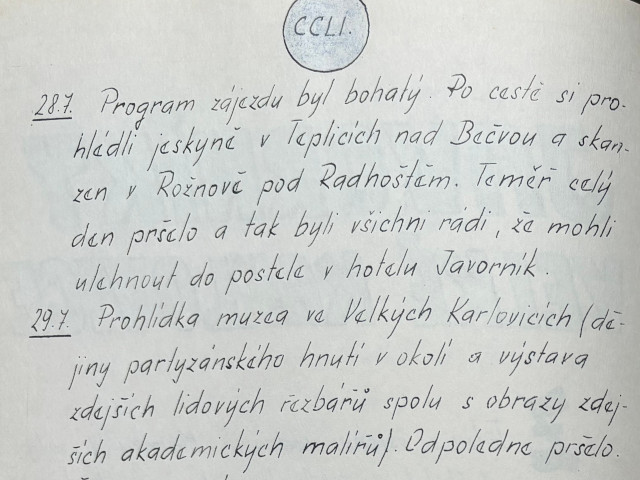 CCLI.
28.7. Program zájezdu byl bohatý. Po cestě si pro-
hlédli jeskyně v Teplicích nad Bečvou a skan-
zen v Rožnově pod Radhoštěm. Teměř celý
den pršelo a tak byli všichni rádi, že mohli
ulehnout do postele v hotelu Javorník.
29.7. Prohlídka muzea ve Velkých Karlovicích (dě-
jiny partyzánského hnutí v okolí a výstava
zdejších lidových řezbářů spolu s obrazy zdej-
ších akademických malířů). Odpoledne pršelo.